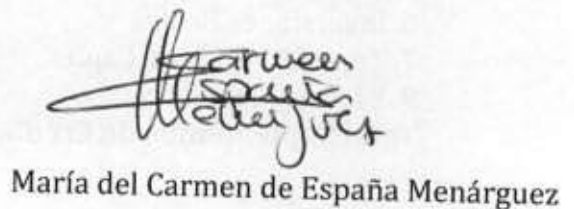 Carmen
España
Menárguez
María del Carmen de España Menárguez